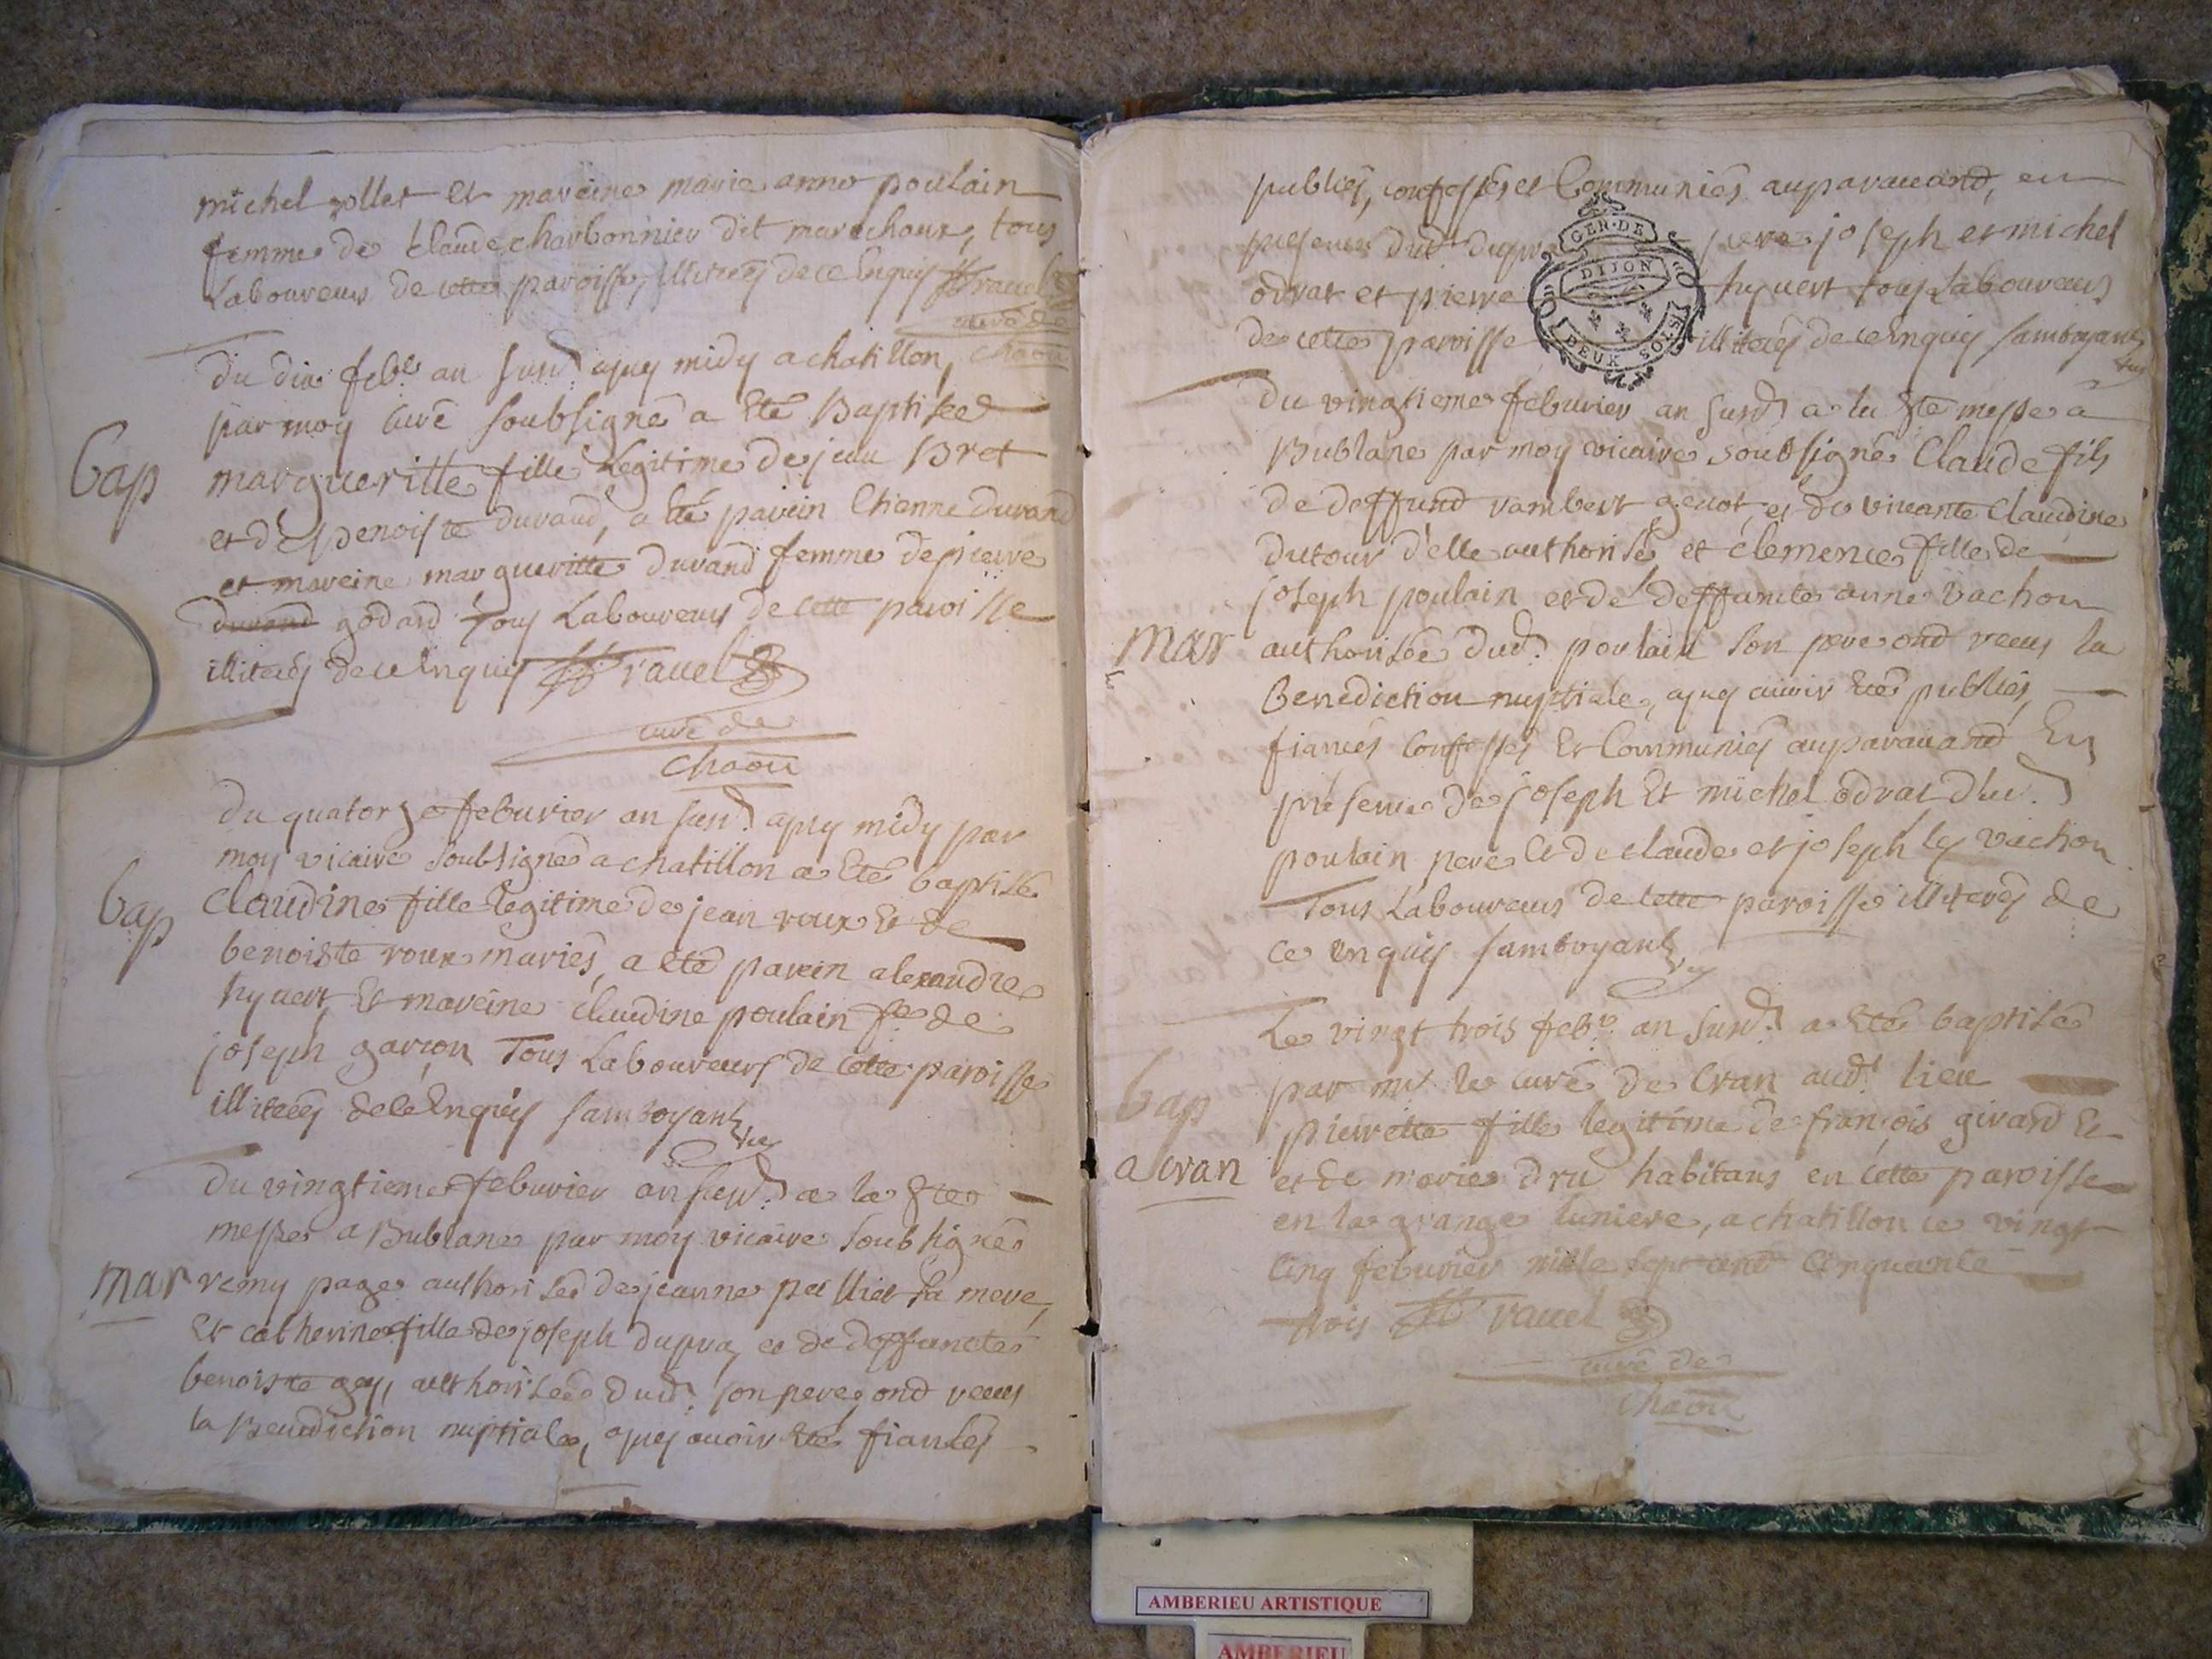 michel rollet et mareine marie anne poulain
femme de Claude charbonnier dit marechaux, tous
Laboureurs de cette paroisse, illiterés de ce Enquis ravel
curé de
chaōn
du dix feb.e an susd apres midy a chatillon,
par moy curé soubsigné a Eté Baptiseé
Bap
margueritte fille Legitime de jean Bret
et de Benoiste durand, a Eté parein Etienne durand
et mareine margueritte durand femme de pierre
durand godard Tous Laboureurs de cette paroisse
illiterés de ce Enquis ravel
curé de
chaōn
Du quatorze feburier an susd. apres midy par
moy vicaire soubsigné a chatillon a Eté baptisé
bap
Claudine fille Legitime de jean roux Et de
benoiste roux mariés, a eté parein alexandre
hyvert, Et mareine Claudine poulain fe de
joseph garçon Tous Laboureurs de cette paroisse
illiterés de ce Enquis samboyant vic
Du vingtieme feburier an susd. a la Ste
messe a Bublane par moy vicaire soubsigné
mar
remy page authorisé de jeanne pelliet sa mere,
Et catherine fille de joseph dupra, et de deffuncte
benoiste gey, authoriseé dud. son pere, ond receus
la Benediction nuptiale, apres avoir Eté fiancés
publiés, confessés et Communiés auparavand, en
presence dud dupra pere joseph et michel
odrat et pierre hyvert tous Laboureurs
de cette paroisse illiterés de ce Enquis samboyant
vic
GEN·DE
DIJON
DEUX SOLS
Du vingtieme feburier an susd a la Ste messe a
Bublane par moy vicaire soubsigné Claude fils
de deffund rambert genot, et de vivante Claudine
dutour d'elle authorisé et clemence fille de
joseph poulain et de deffuncte anne vachon
mar
authoriseé dud. poulain son pere ond receus la
Benediction nuptiale, apres avoir Eté publiés,
fiancés confessés Et Communiés auparavand En
presence de joseph Et michel odrat dud.
poulain pere et de claude et joseph les vachon
Tous Laboureurs de cette paroisse illiterés de
ce enquis samboyant vic
Le vingt trois feb.e an susd. a Eté baptiseé
bap
par mr le curé de Cran aud.t lieu
pierrette fille legitime de françois girard Et
a cran
et de marie dru habitans en cette paroisse
en la grange luniere, a chatillon ce vingt
cinq feburier mille sept cend Cinquante
trois ravel
curé de
chaōn
AMBERIEU ARTISTIQUE
AMBERIEU